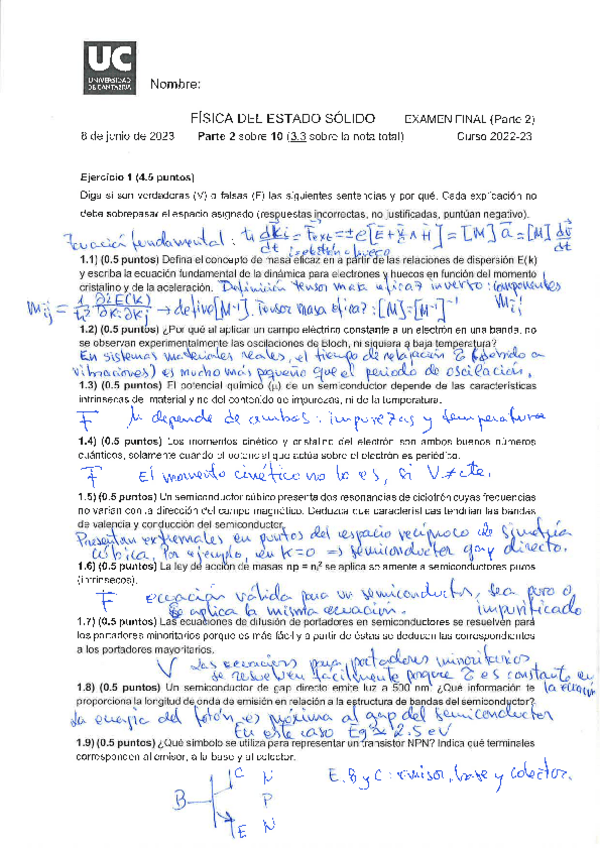 UC
UNIVERSIDAD
DE CANTABRIA
Nombre:
FÍSICA DEL ESTADO SÓLIDO EXAMEN FINAL (Parte 2)
8 de junio de 2023 Parte 2 sobre 10 (3.3 sobre la nota total) Curso 2022-23
Ejercicio 1 (4.5 puntos)
Diga si son verdaderas (V) o falsas (F) las siguientes sentencias y por qué. Cada explicación no
debe sobrepasar el espacio asignado (respuestas incorrectas, no justificadas, puntúan negativo).
Ecuación fundamental: ħ dk/dt = F ext = ± e [E + v × H] = [M] a = [M] dv/dt
1.1) (0.5 puntos) Defina el concepto de masa eficaz en a partir de las relaciones de dispersión E(k)
y escriba la ecuación fundamental de la dinámica para electrones y huecos en función del momento
cristalino y de la aceleración. Definición Tensor masa eficaz inverso: componentes
mij = 1/ħ² ∂²E(k)/∂ki ∂kj → define [M⁻¹]. Tensor masa eficaz: [M] = [M⁻¹]⁻¹ mij
1.2) (0.5 puntos) ¿Por qué al aplicar un campo eléctrico constante a un electrón en una banda, no
se observan experimentalmente las oscilaciones de Bloch, ni siquiera a baja temperatura?
En sistemas materiales reales, el tiempo de relajación τ (debido a
vibraciones) es mucho más pequeño que el periodo de oscilación.
1.3) (0.5 puntos) El potencial químico (μ) de un semiconductor depende de las características
intrínsecas del material y no del contenido de impurezas, ni de la temperatura.
F μ depende de ambos: impurezas y temperatura
1.4) (0.5 puntos) Los momentos cinético y cristalino del electrón son ambos buenos números
cuánticos, solamente cuando el potencial que actúa sobre el electrón es periódico.
F El momento cinético no lo es, si V ≠ cte.
1.5) (0.5 puntos) Un semiconductor cúbico presenta dos resonancias de ciclotrón cuyas frecuencias
no varían con la dirección del campo magnético. Deduzca que características tendrían las bandas
de valencia y conducción del semiconductor.
Presentan extremales en puntos del espacio recíproco de simetría
cúbica. Por ejemplo, en k=0 ⇒ semiconductor gap directo.
1.6) (0.5 puntos) La ley de acción de masas np = ni² se aplica solamente a semiconductores puros
(intrínsecos).
F ecuación válida para un semiconductor, sea puro o
Se aplica la misma ecuación. impurificado
1.7) (0.5 puntos) Las ecuaciones de difusión de portadores en semiconductores se resuelven para
los portadores minoritarios porque es más fácil y a partir de éstas se deducen las correspondientes
a los portadores mayoritarios.
V Las ecuaciones para portadores minoritarios
se resuelven fácilmente porque τ es constante en
la ecuación
1.8) (0.5 puntos) Un semiconductor de gap directo emite luz a 500 nm. ¿Qué información te
proporciona la longitud de onda de emisión en relación a la estructura de bandas del semiconductor?
La energía del fotón, es próxima al gap del semiconductor
En este caso Eg ≈ 2.5 eV
1.9) (0.5 puntos) ¿Qué símbolo se utiliza para representar un transistor NPN? Indica qué terminales
corresponden al emisor, a la base y al colector.
C N
B P
E N
E, B y C: emisor, base y colector.